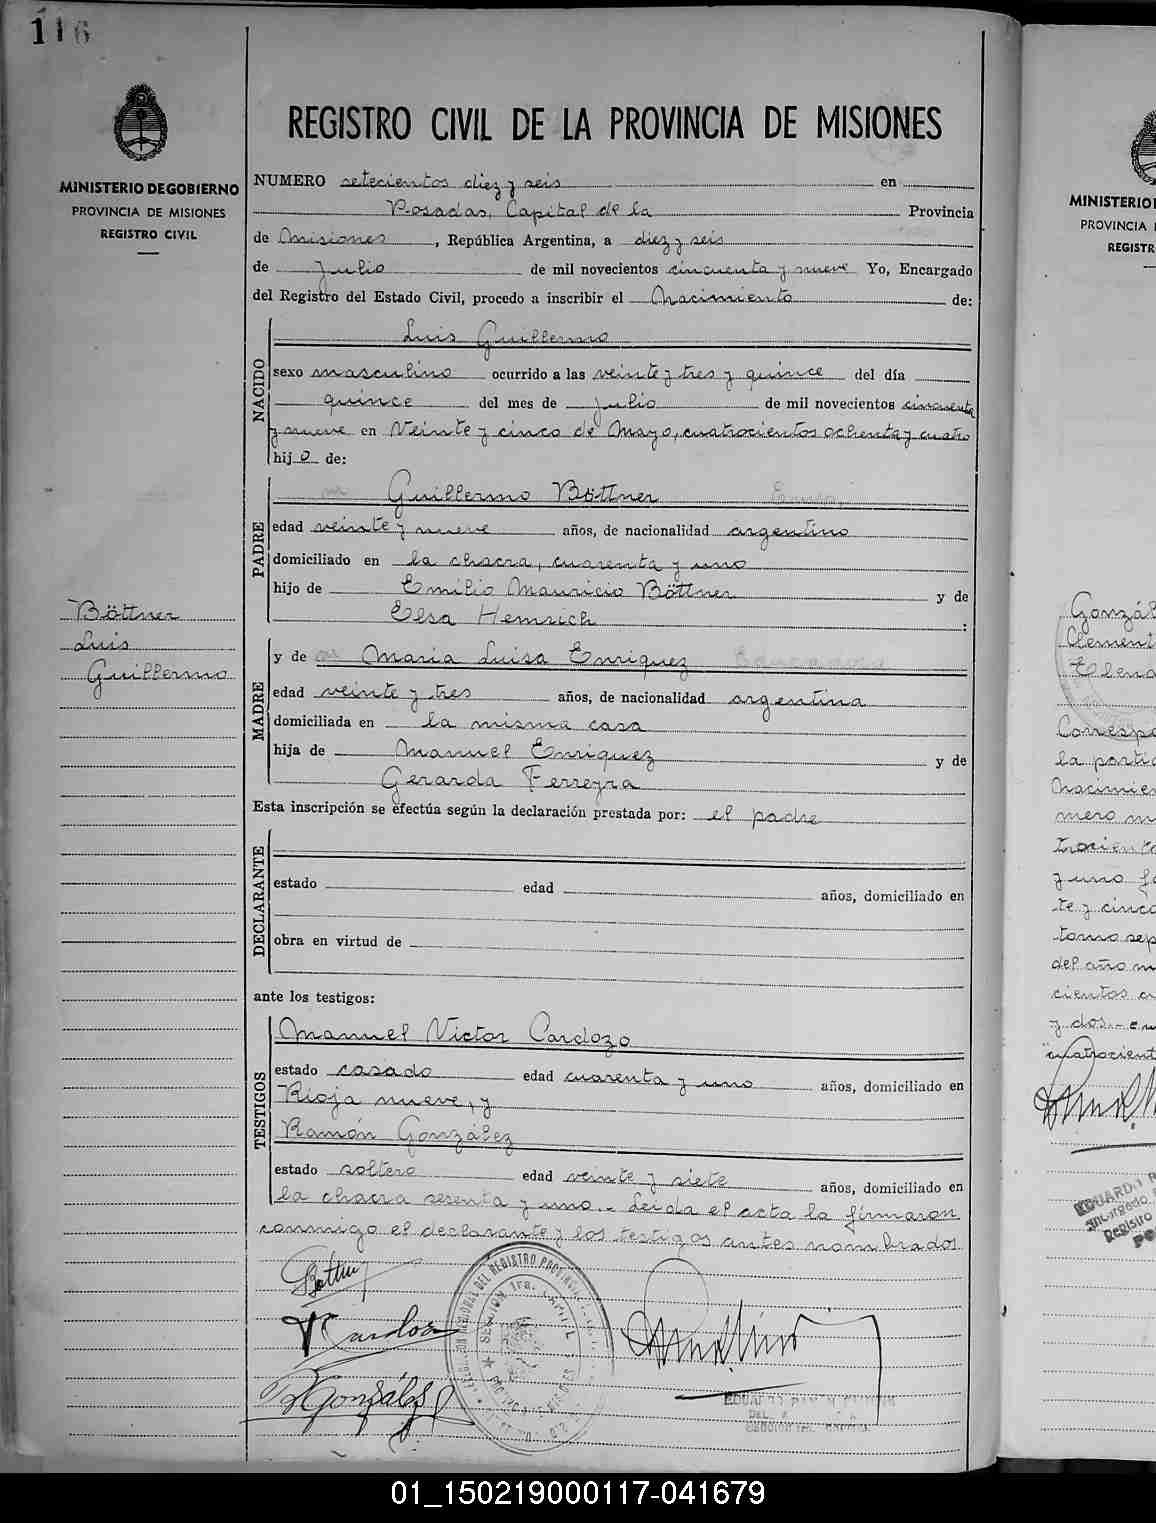 116
MINISTERIO DE GOBIERNO
PROVINCIA DE MISIONES
REGISTRO CIVIL
Böttner
Luis
Guillermo
REGISTRO CIVIL DE LA PROVINCIA DE MISIONES
NUMERO setecientos diez y seis en
Posadas, Capital de la Provincia
de Misiones, República Argentina, a diez y seis
de Julio de mil novecientos cincuenta y nueve Yo, Encargado
del Registro del Estado Civil, procedo a inscribir el Nacimiento de:
NACIDO
Luis Guillermo
sexo masculino ocurrido a las veinte y tres y quince del día
quince del mes de Julio de mil novecientos cincuenta
y nueve en Veinte y cinco de Mayo, cuatrocientos ochenta y cuatro
hijo de:
PADRE
Guillermo Böttner
edad veinte y nueve años, de nacionalidad argentino
domiciliado en la chacra, cuarenta y uno
hijo de Emilio Mauricio Böttner y de
Elsa Hemrich :
MADRE
y de Maria Luisa Enriquez
edad veinte y tres años, de nacionalidad argentina
domiciliada en la misma casa
hija de Manuel Enriquez y de
Gerarda Ferreyra
Esta inscripción se efectúa según la declaración prestada por: el padre
DECLARANTE
estado edad años, domiciliado en
obra en virtud de
ante los testigos:
TESTIGOS
Manuel Victor Cardozo
estado casado edad cuarenta y uno años, domiciliado en
Rioja nueve, y
Ramón González
estado soltero edad veinte y siete años, domiciliado en
la chacra sesenta y uno.- Leida el acta la firmaron
conmigo el declarante y los testigos antes nombrados
Böttner
González
MINISTERIO
PROVINCIA
REGISTR
Gonzál
Clement
Elena
Correspo
la partid
Nacimien
mero m
trocient
y uno fo
te y cinco
tomo sep
del año m
cientos c
y dos.-
cuatrocient
EDUARDO R
Registro
01_150219000117-041679